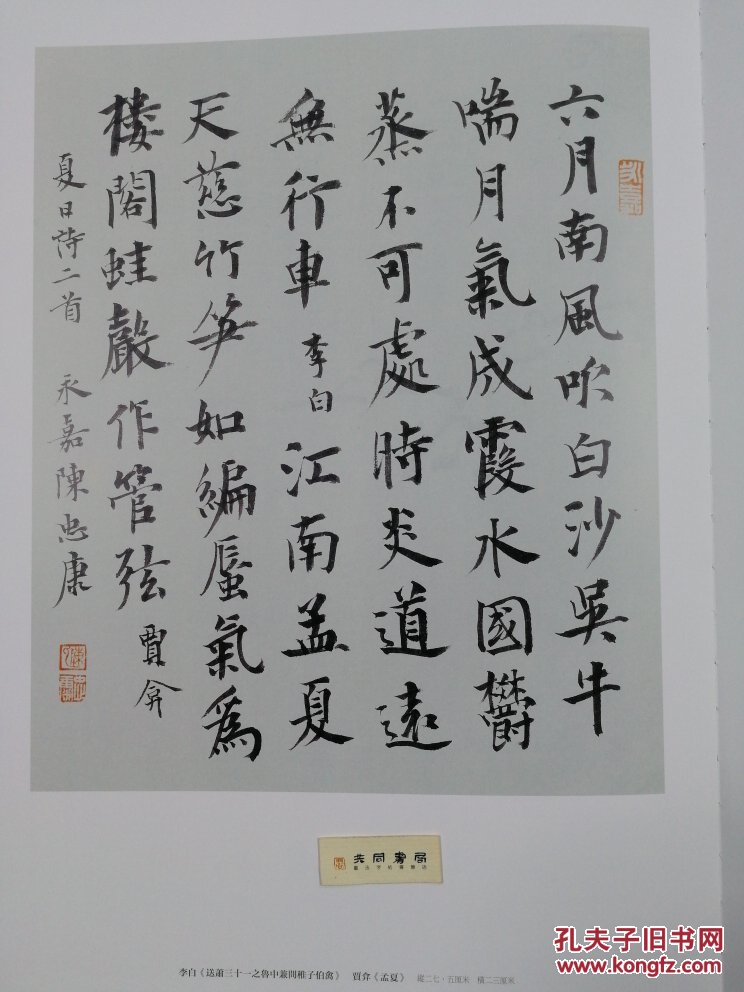 六月南風吹白沙吳牛
喘月氣成霞水國鬱
蒸不可處時炎道遠
無行車 李白 江南孟夏
天慈竹笋如編蜃氣爲
樓閣蛙聲作管弦 賈弇
夏日詩二首 永嘉陳忠康
同書局
李白《送蕭三十一之魯中兼問稚子伯禽》 賈弇《孟夏》 縱二七·五厘米 橫二三厘米
孔夫子旧书网
www.kongfz.com